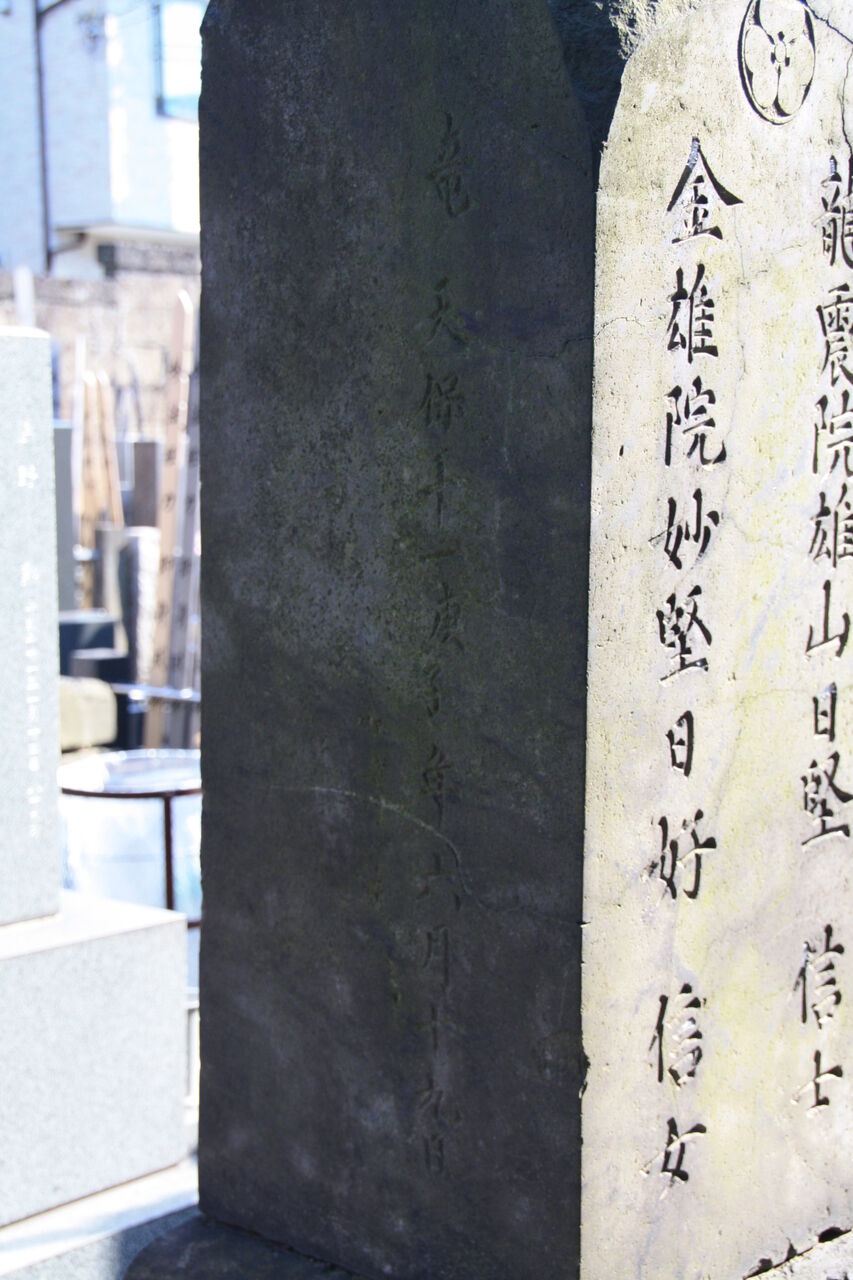 龍震院雄山日堅 信士
金雄院妙堅日好 信女
竜 天保十一庚子年六月十九日